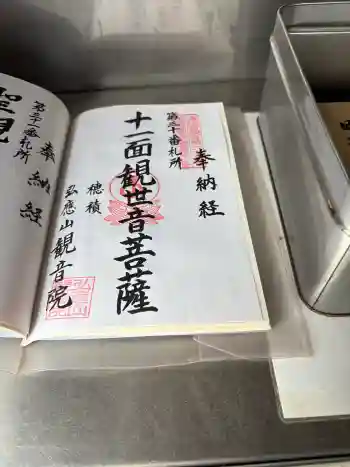 奉納経
第三十番札所
十一面観世音菩薩
穂積
弘應山観音院
奉納経
聖観